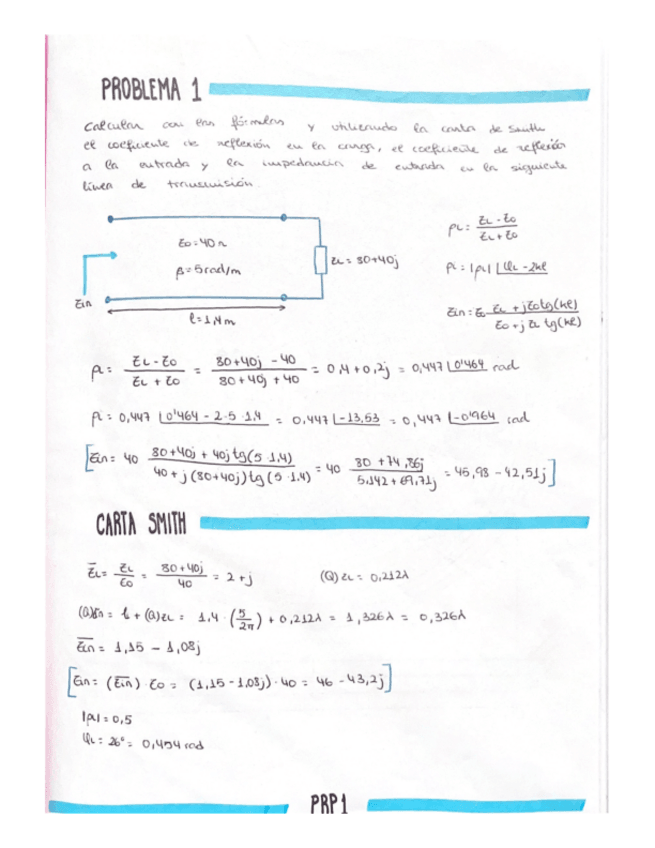 PROBLEMA 1
Calcular con las fórmulas y utilizando la carta de Smith
el coeficiente de reflexión en la carga, el coeficiente de reflexión
a la entrada y la impedancia de entrada en la siguiente
línea de transmisión.
Zo = 40 Ω
β = 5 rad/m
ZL = 80+40j
Zin
l = 1,4 m
ρL = (ZL - Zo) / (ZL + Zo)
ρi = |ρL| ∠φL - 2kl
Zin = Zo (ZL + jZo tg(kl)) / (Zo + j ZL tg(kl))
ρL = (ZL - Zo) / (ZL + Zo) = (80+40j - 40) / (80+40j + 40) = 0,4 + 0,2j = 0,447 ∠0'464 rad
ρi = 0,447 ∠0'464 - 2·5·1.4 = 0,447 ∠-13,53 = 0,447 ∠-0'964 rad
[Zin = 40 (80+40j + 40j tg(5·1.4)) / (40 + j(80+40j) tg(5·1.4)) = 40 (80 + 74,86j) / (5,142 + 69,71j) = 45,98 - 42,51j]
CARTA SMITH
Z̅L = ZL / Zo = (80+40j) / 40 = 2 + j (Q) ZL = 0,212λ
(Q)Zin = l + (Q)ZL = 1,4 · (5 / 2π) + 0,212λ = 1,326λ = 0,326λ
Z̅in = 1,15 - 1,08j
[Zin = (Z̅in) · Zo = (1,15 - 1,08j) · 40 = 46 - 43,2j]
|ρL| = 0,5
φL = 26° = 0,454 rad
PRP1